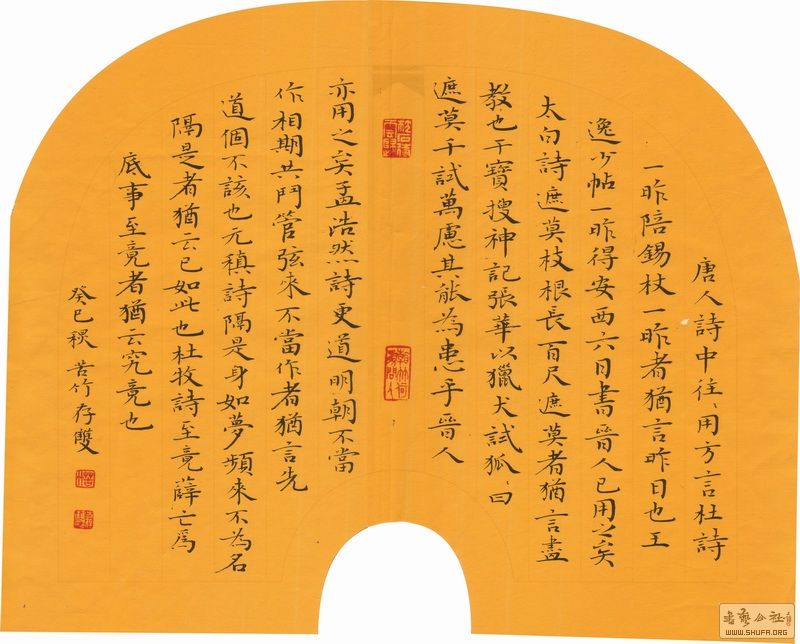 唐人詩中往〻用方言杜詩
一昨陪錫杖一昨者猶言昨日也王
逸少帖一昨得安西六日書晉人已用之矣
太白詩遮莫枝根長百尺遮莫者猶言盡
教也干寶搜神記張華以獵犬試狐〻曰
遮莫千試萬慮其能為患乎晉人
亦用之矣孟浩然詩更道明朝不當
作相期共鬥管弦來不當作者猶言先
道個不該也元稹詩隔是身如夢頻來不為名
隔是者猶云已如此也杜牧詩至竟薛亡為
底事至竟者猶云究竟也
癸巳秋 苦竹存雙
書藝公社
WWW.SHUFA.ORG